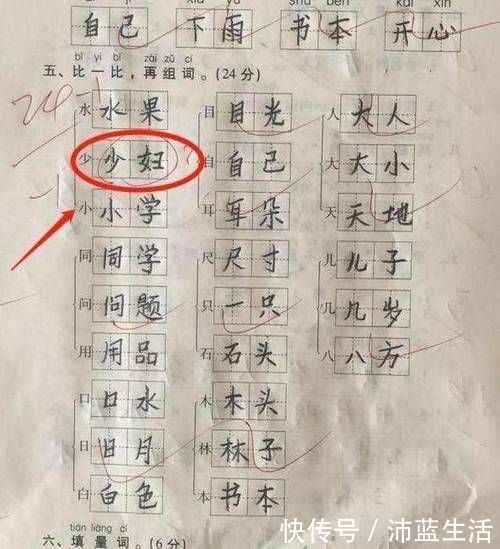 xià yǔ shū běn kāi xīn
自己 下雨 书本 开心
bǐ yì bǐ zài zǔ cí
五、比一比，再组词。(24分)
24-1
水 水果 目 目光 人 大人
少 少妇 自 自己 大 大小
-1
小 小学 耳 耳朵 天 天地
同 同学 尺 尺寸 儿 儿子
问 问题 只 一只 几 几岁
用 用品 石 石头 八 八方
口 口水 木 木头
日 旧月 林 林子
白 白色 本 书本
tián liàng cí
六、填量词。(6分)
快传号 / 沛蓝生活